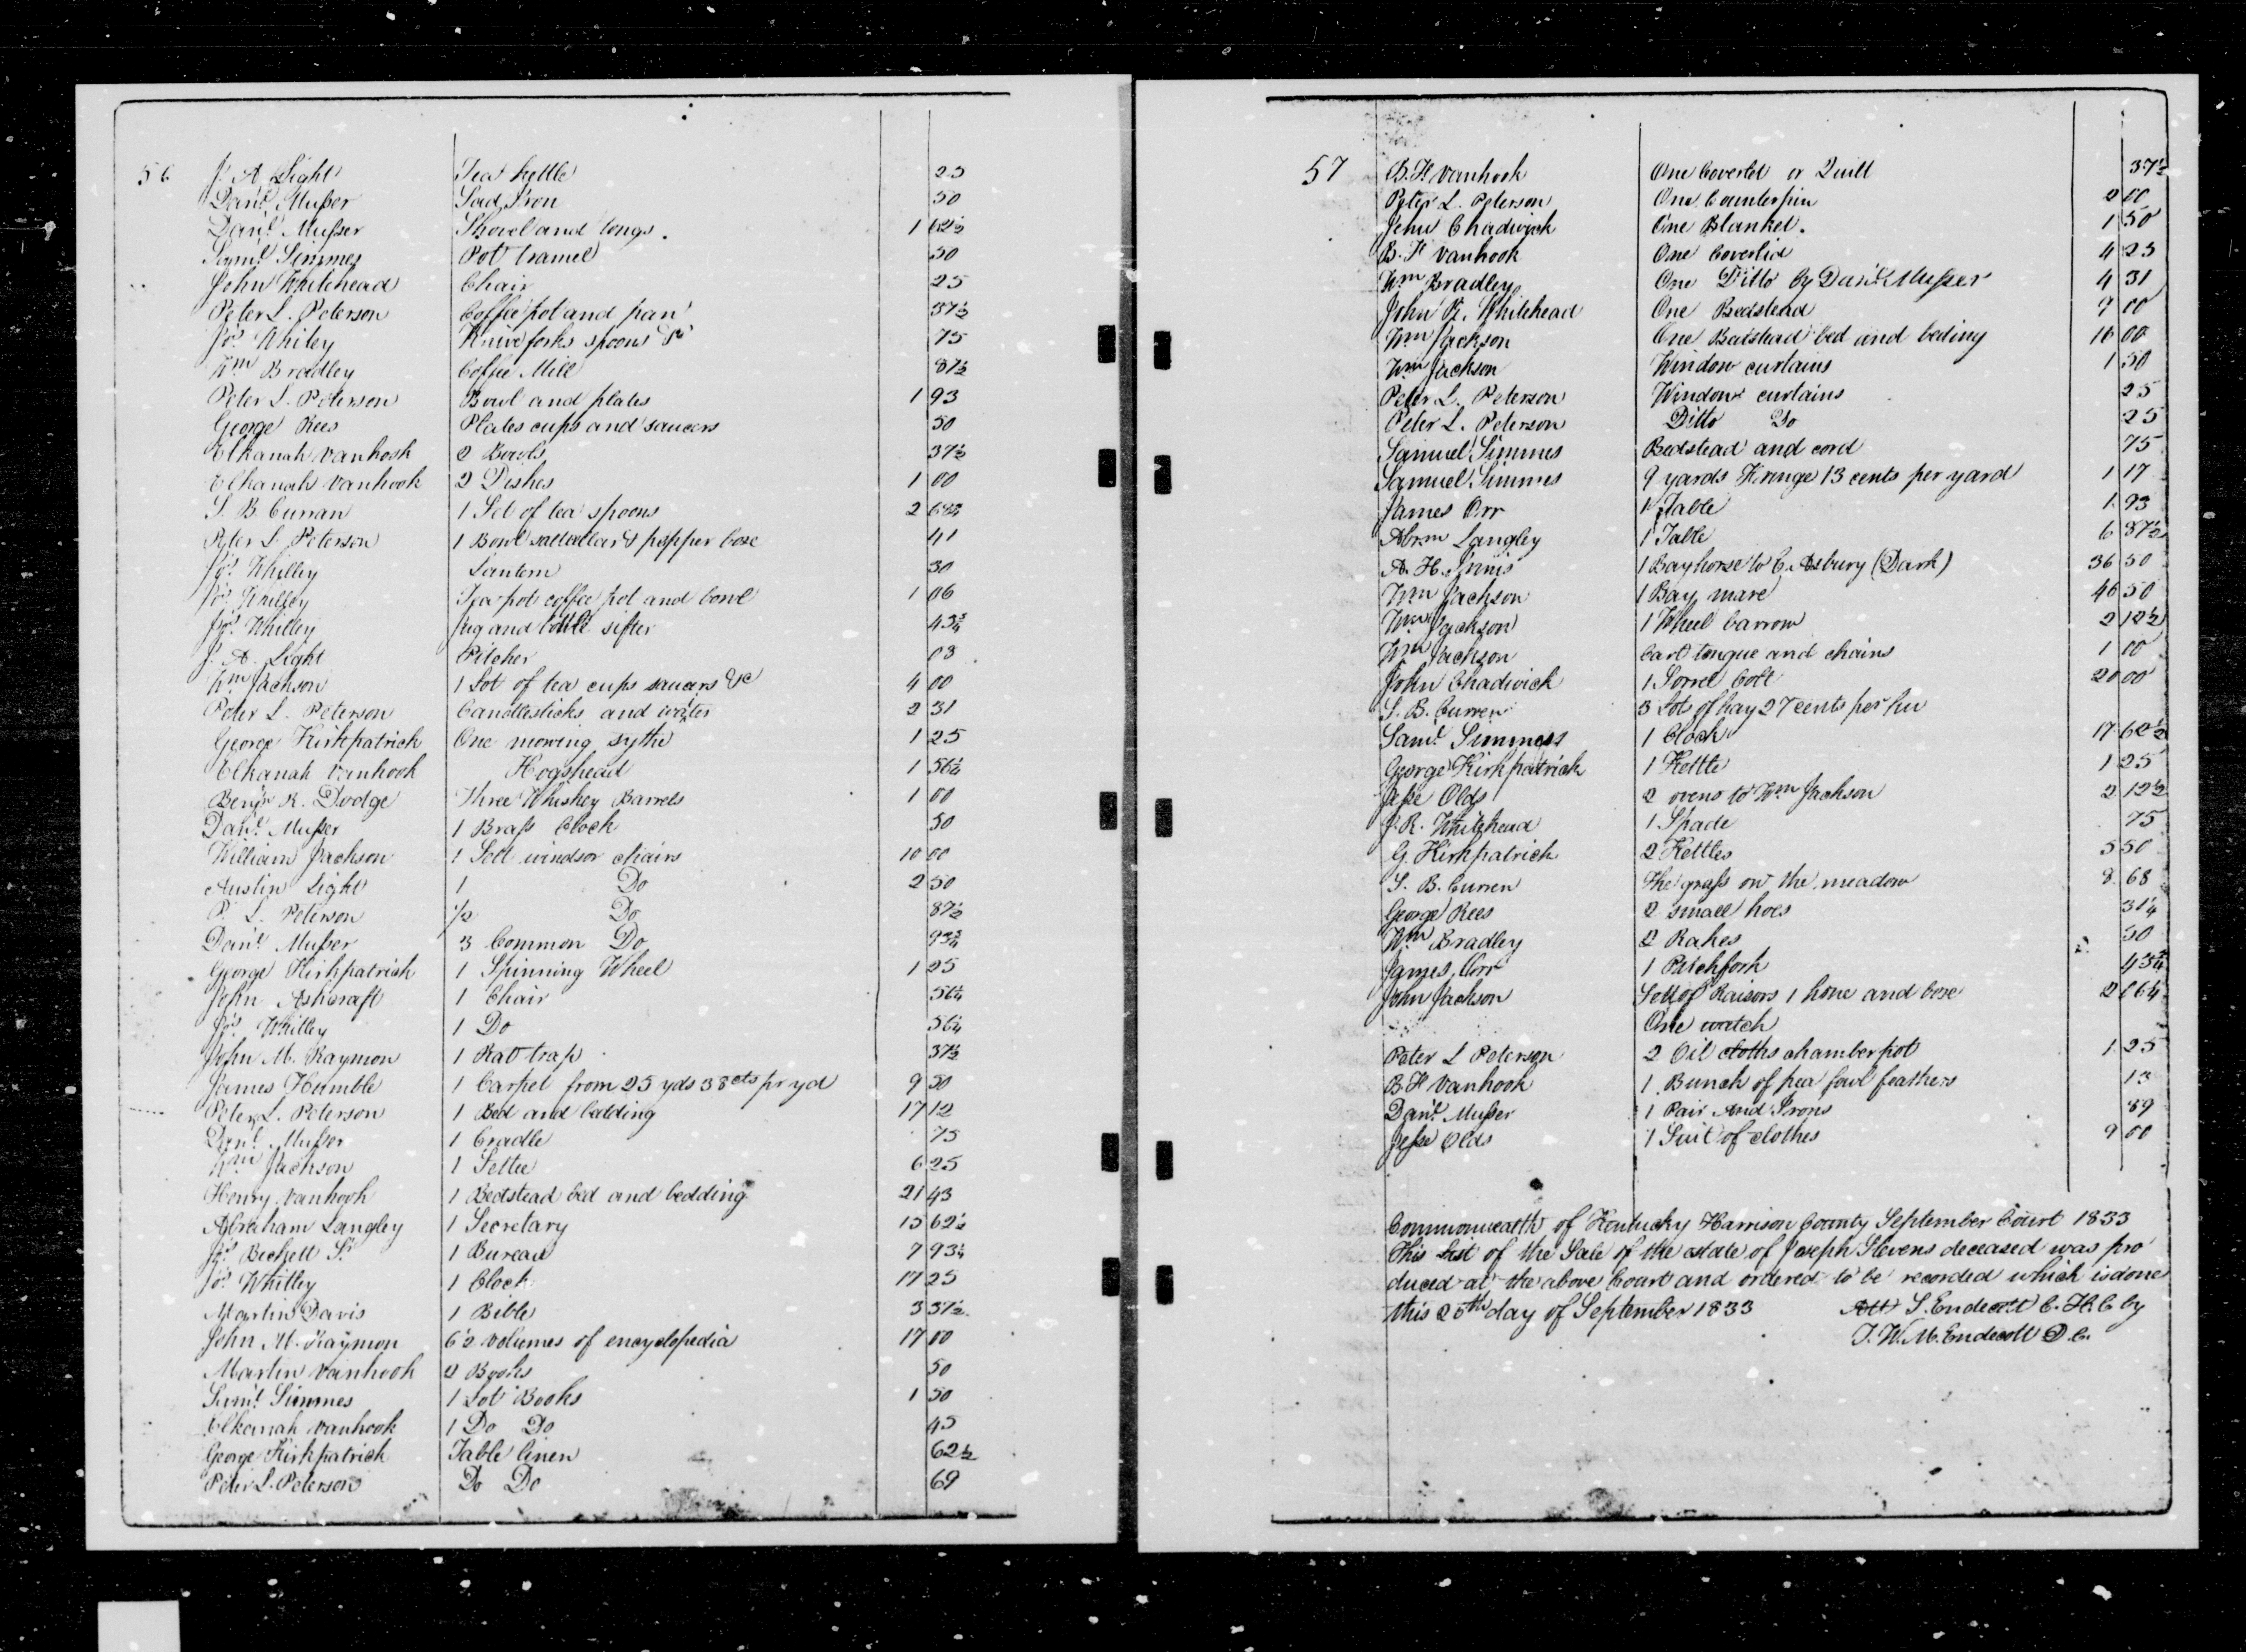 56 J. A. Light Tea kettle 25
Danl. Musser Sad Iron 50
Danl. Musser Shovel and tongs. 1 62½
Saml. Simmes Pot tramel 50
John Whitehead Chair 25
Peter L. Peterson Coffee pot and pan 37½
Jos. Whitey Knive forks spoons &c 75
Wm Bradley Coffee Mill 87½
Peter L. Peterson Bowl and plates 1 93
George Rees Plates cups and saucers 50
Elkanah Vanhook 2 Bowls 37½
Elkanah Vanhook 2 Dishes 1 00
S. B. Curran 1 Set of tea spoons 2
Peter L. Peterson 1 Bowl saltcellar & pepper boxe 41
Jos. Whilley Lantern 30
Jos. Whilley Tea pot coffee pot and bowl 1 06
Jos. Whilley Jug and bottle sifter 43¾
J. A. Light Pitcher 03
Wm Jackson 1 Lot of tea cups saucers &c 4 00
Peter L. Peterson Candlesticks and waiter 2 31
George Kirkpatrick One mowing sythe 1 25
Elkanah Vanhook Hogshead 1 56¼
Benjn R. Dodge Three Whiskey Barrels 1 00
Danl. Musser 1 Brass Clock 50
William Jackson 1 Sett windsor chairs 10 00
Austin Light 1 Do 2 50
P. L. Peterson ½ Do 87½
Danl. Musser 3 Common Do 93¾
George Kirkpatrick 1 Spinning Wheel 1 25
John Ashcraft 1 Chair 56¼
Jos. Whilley 1 Do 56¼
John M. Raymon 1 Rat trap 37½
James Humble 1 Carpet from 25 yds 38 cts pr yd 9 50
Peter L. Peterson 1 Bed and bedding 17 12
Danl. Musser 1 Cradle 75
Wm Jackson 1 Settee 6 25
Henry Vanhook 1 Bedstead bed and bedding 21 43
Abraham Langley 1 Secretary 15 62½
Jos. Beckett Sr 1 Bureau 7 93¼
Jos. Whilley 1 Clock 17 25
Martin Davis 1 Bible 3 37½
John M. Raymon 6½ volumes of encyclopedia 17 00
Martin Vanhook 2 Books 50
Saml. Simmes 1 Lot Books 1 50
Elkanah Vanhook 1 Do Do 45
George Kirkpatrick Table linen 62½
Peter L. Peterson Do Do 69
57 B. H. Vanhook One Coverlet or Quilt 37½
Peter L. Peterson One Counterpin 2 00
John Chadwick One Blanket. 1 50
B. H. Vanhook One Coverlid 4 25
Wm Bradley One Ditto by Danl. Musser 4 31
John R. Whitehead One Bedstead 9 00
Wm Jackson One Bedstead bed and beding 16 00
Wm Jackson Window curtains 1 50
Peter L. Peterson Window curtains 25
Peter L. Peterson Ditto Do 25
Samuel Simmes Bedstead and cord 75
Samuel Simmes 9 yards Fringe 13 cents per yard 1 17
James Orr 1 Table 1 93
Abrm Langley 1 Table 6 87½
A. H. Innis 1 Bay horse to C. Asbury (Dark) 36 50
Wm Jackson 1 Bay mare 40 50
Wm Jackson 1 Wheel barrow 2 12½
Wm Jackson Cart tongue and chains 1 00
John Chadwick 1 Sorrel Colt 20 00
S. B. Curren 3 Lots of hay 27 cents per hu
Saml. Simmess 1 Clock 17 62½
George Kirkpatrick 1 Kettle 1 25
Jesse Olds 2 ovens to Wm Jackson 2 12½
J. R. Whitehead 1 Spade 75
G. Kirkpatrick 2 Kettles 5 50
S. B. Curren The grass on the meadow 8 68
George Rees 2 small hoes 31¼
Wm Bradley 2 Rakes 50
James Orr 1 Patchfork 43¾
John Jackson Sett of Raisors 1 hone and boxe 2
One watch
Peter L Peterson 2 Oil cloths chamber pot 1 25
B H Vanhook 1 Bunch of pea fowl feathers 13
Danl. Musser 1 Pair And Irons 89
Jesse Olds 1 Suit of clothes 9 00
Commonwealth of Kentucky Harrison County September Court 1833
This List of the Sale of the estate of Joseph Stevens deceased was pro
duced at the above Court and ordered to be recorded which is done
this 25th day of September 1833 Att S. Endecott C. H. C by
J. W. M. Endecott D. C.